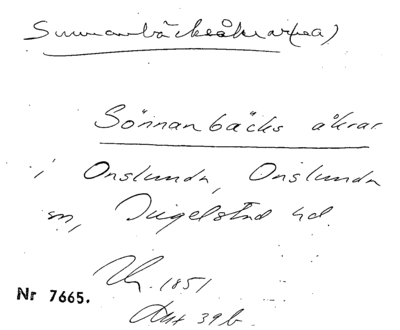 Sunnanbäcksåkrar(na)
Sönnanbäcks åkrar
i Onslunda, Onslunda
sn, Ingelstad hd.
1851
Nr 7665.
Akt 39 b.